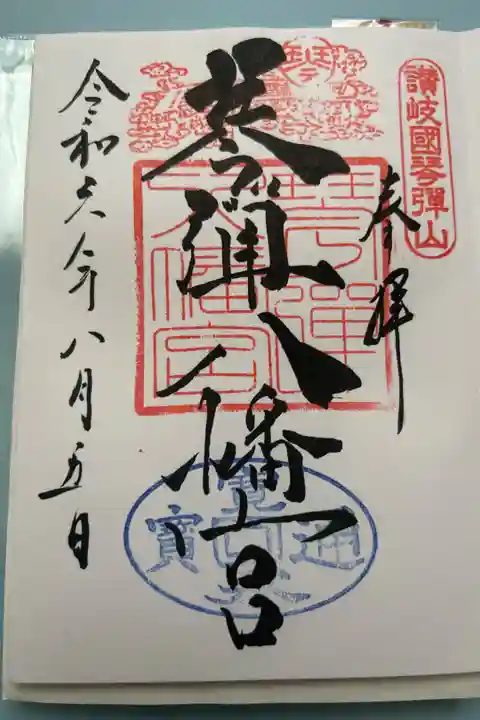 讃岐國琴彈山
奉拝
琴弾八幡宮
琴彈八幡宮
寛永通寳
令和六年八月五日